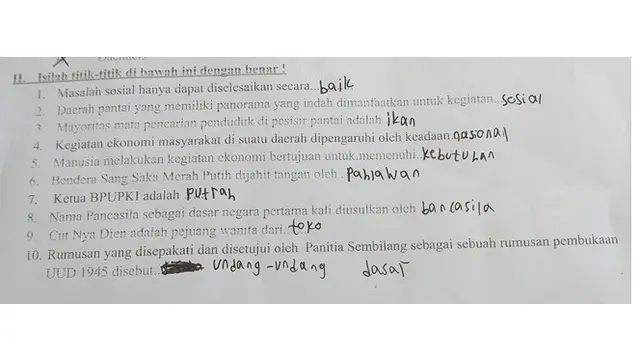 II. Isilah titik-titik di bawah ini dengan benar !
1. Masalah sosial hanya dapat diselesaikan secara...baik
2. Daerah pantai yang memiliki panorama yang indah dimanfaatkan untuk kegiatan..sosial
3. Mayoritas mata pencarian penduduk di pesisir pantai adalah ikan
4. Kegiatan ekonomi masyarakat di suatu daerah dipengaruhi oleh keadaan.nasional
5. Manusia melakukan kegiatan ekonomi bertujuan untuk.memenuhi.kebutuhan
6. Bendera Sang Saka Merah Putih dijahit tangan oleh .Pahlawan
7. Ketua BPUPKI adalah putrah
8. Nama Pancasila sebagai dasar negara pertama kali diusulkan oleh bancasila
9. Cut Nya Dien adalah pejuang wanita dari.toko
10. Rumusan yang disepakati dan disetujui oleh Panitia Sembilang sebagai sebuah rumusan pembukaan
UUD 1945 disebut.. undang-undang dasar